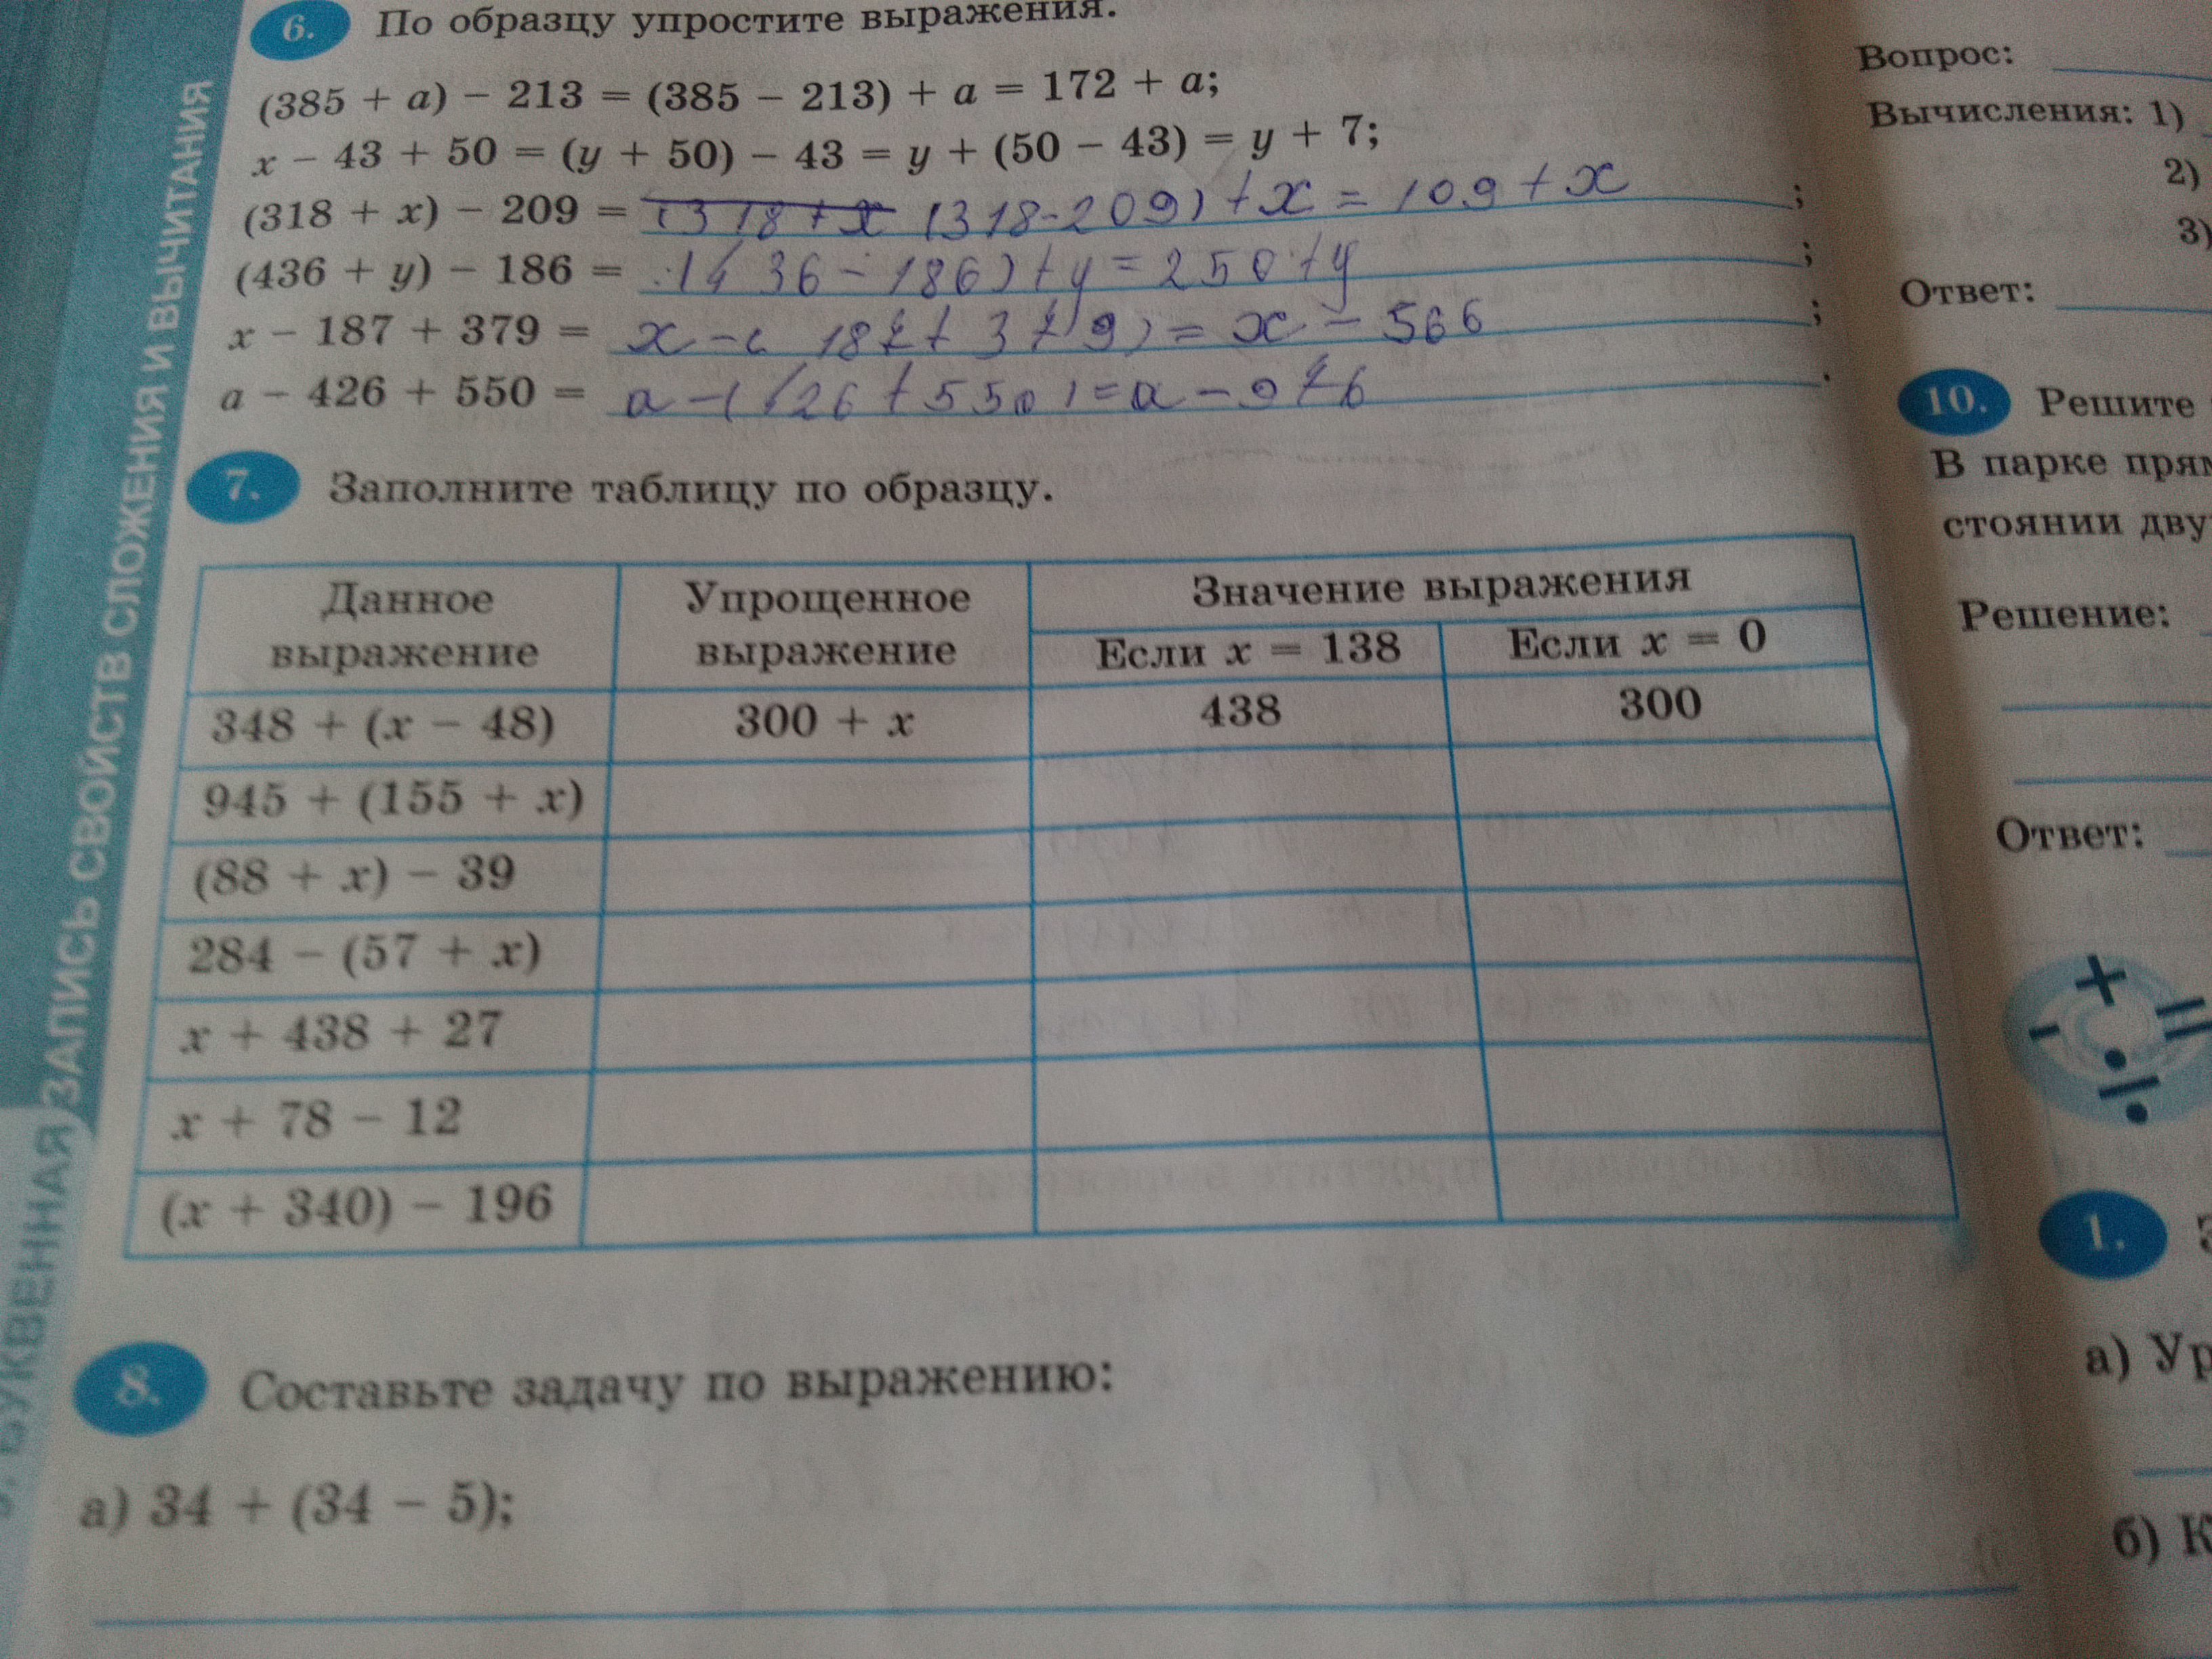 БУКВЕННАЯ ЗАПИСЬ СВОЙСТВ СЛОЖЕНИЯ И ВЫЧИТАНИЯ
6. По образцу упростите выражения.
(385 + a) − 213 = (385 − 213) + a = 172 + a;
x − 43 + 50 = (y + 50) − 43 = y + (50 − 43) = y + 7;
(318 + x) − 209 = (318 + x (318-209) + x = 109 + x ;
(436 + y) − 186 = (436 − 186) + y = 250 + y ;
x − 187 + 379 = x − (187 + 379) = x − 566 ;
a − 426 + 550 = a − (426 + 550) = a − 976 .
7. Заполните таблицу по образцу.
Данное выражение
Упрощенное выражение
Значение выражения
Если x = 138
Если x = 0
348 + (x − 48) 300 + x 438 300
945 + (155 + x)
(88 + x) − 39
284 − (57 + x)
x + 438 + 27
x + 78 − 12
(x + 340) − 196
8. Составьте задачу по выражению:
а) 34 + (34 − 5);
Вопрос:
Вычисления: 1)
2)
3)
Ответ:
10. Решите
В парке
стоянии
Решение:
Ответ:
1.
а)
б)